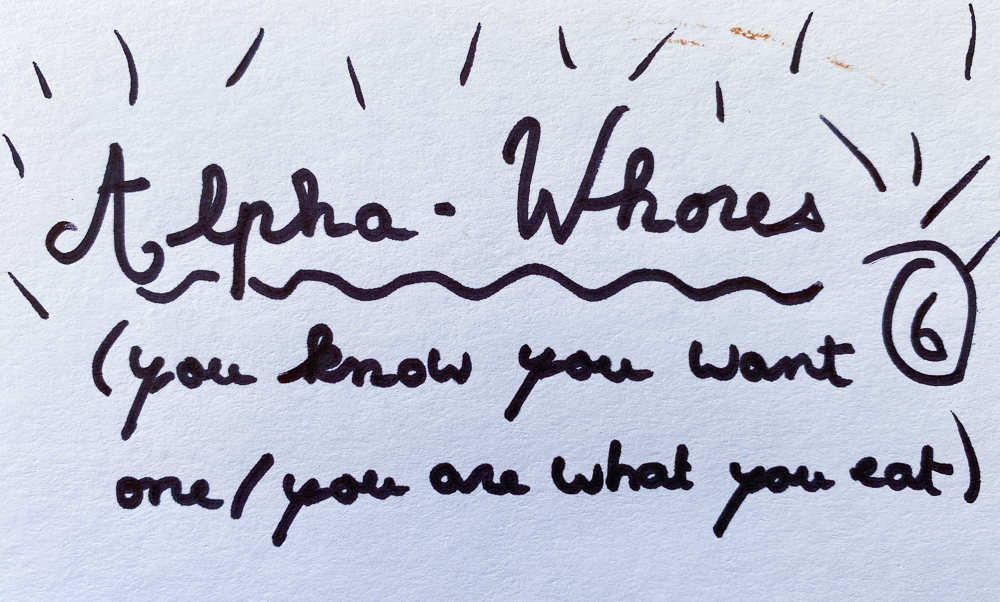 Alpha-Whores
6
(you know you want
one/you are what you eat)